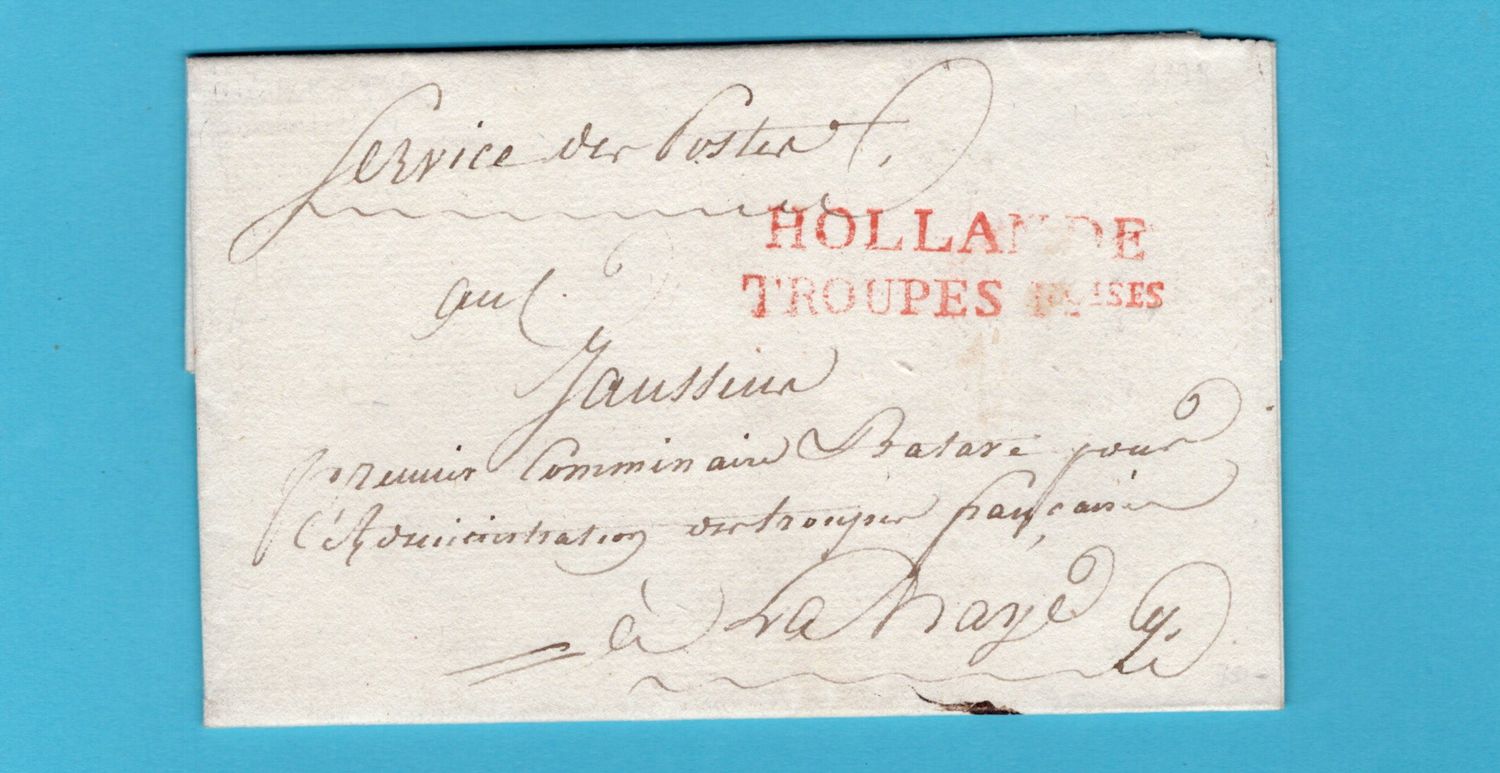 Service des Postes
HOLLANDE
TROUPES FR.AISES
au C.
Jaussens
premier Commissaire Batave pour
l'Administration des troupes françaises
à La Haye